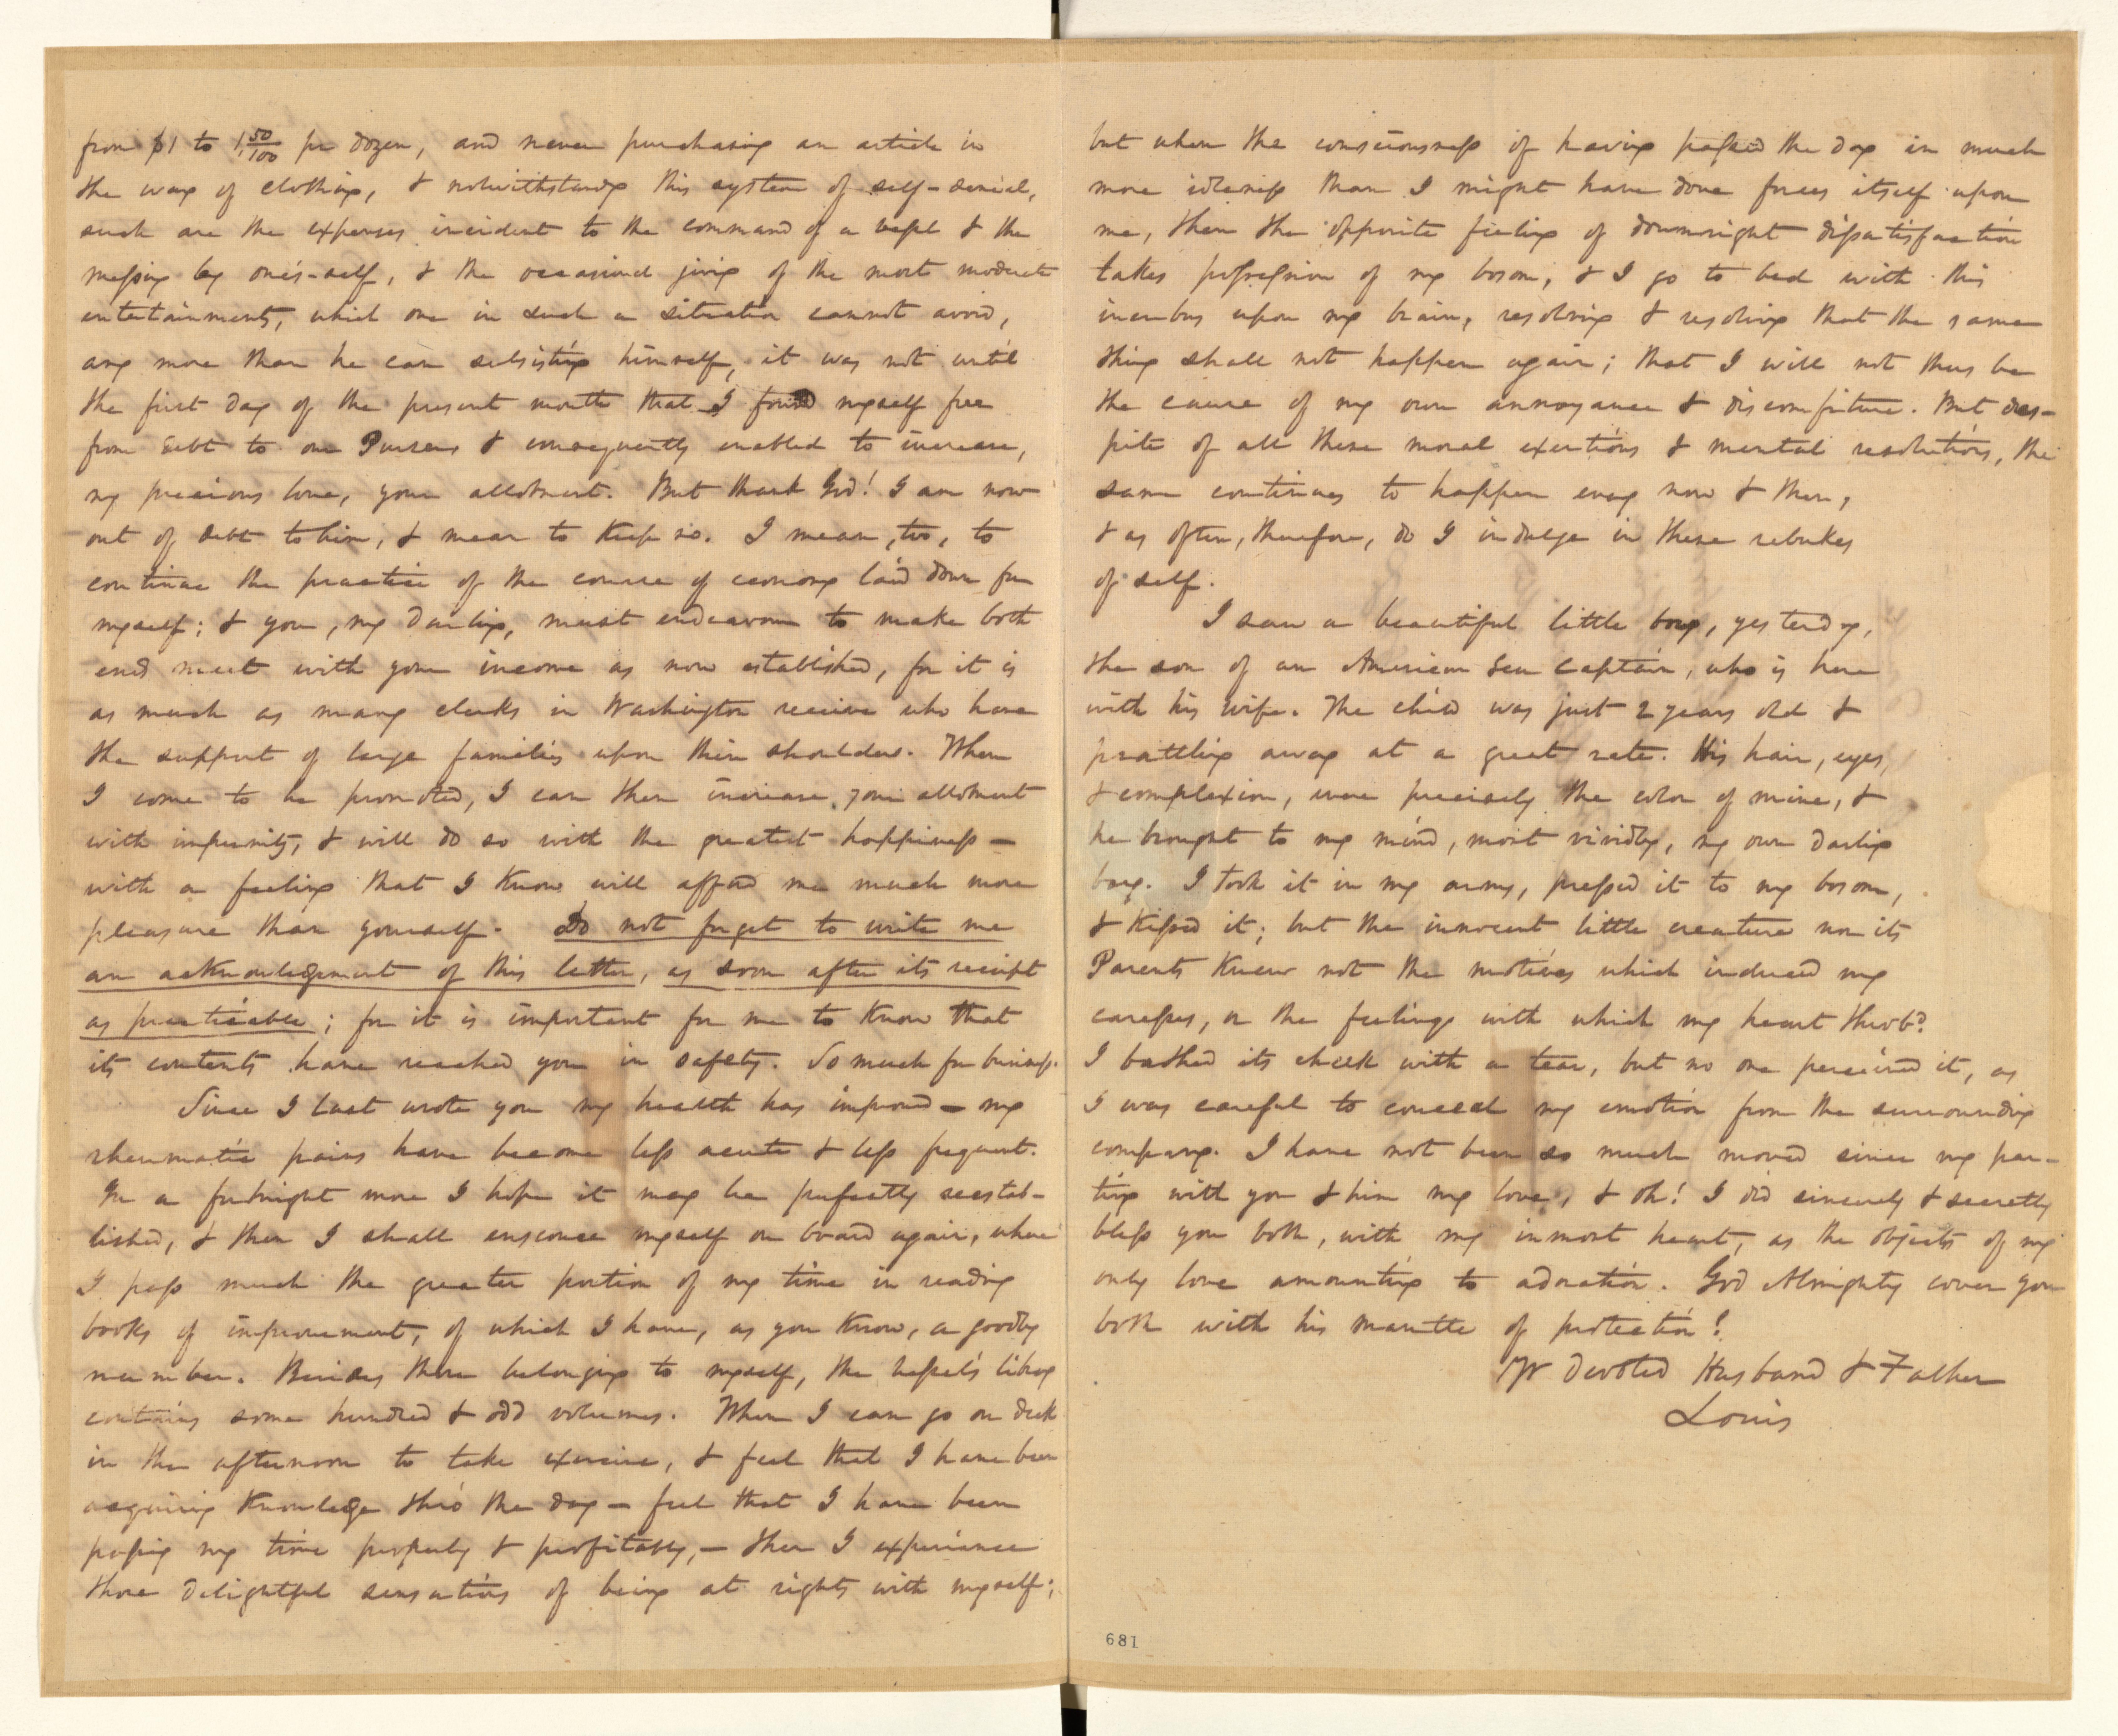 from $1 to 1,50/100 pr dozen, and never purchasing an article in
the way of clothing, & notwithstandg this system of self-denial,
such are the expenses incident to the command of a vessel & the
messing by one's-self, & the occasional giving of the most moderate
entertainments, which one in such a situation cannot avoid,
any more than he can subsisting himself, it was not until
the first day of the present month that I found myself free
from debt to our Purser & consequently enabled to increase,
my precious love, your allotment. But thank God! I am now
out of debt to him, & mean to keep so. I mean, too, to
continue the practice of the course of economy laid down for
myself; & you, my Darling, must endeavour to make both
ends meet with your income as now established, for it is
as much as many clerks in Washington receive who have
the support of large families upon their shoulders. When
I come to be promoted, I can then increase your allotment
with impunity, & will do so with the greatest happiness —
with a feeling that I know will afford me much more
pleasure than yourself. Do not forget to write me
an acknowledgement of this letter, as soon after its receipt
as practicable; for it is important for me to know that
its contents have reached you in safety. So much for business.
Since I last wrote you my health has improved — my
rheumatic pains have become less acute & less frequent.
In a fortnight more I hope it may be perfectly reestab-
lished, & then I shall ensconce myself on board again, where
I pass much the greater portion of my time in reading
books of improvement, of which I have, as you know, a goodly
number. Besides those belonging to myself, the vessel's library
contains some hundred & odd volumes. When I can go on deck
in the afternoon to take exercise, & feel that I have been
acquiring knowledge thro' the day — feel that I have been
passing my time properly & profitably, — then I experience
those delightful sensations of being at rights with myself;
but when the consciousness of having passed the day in much
more idleness than I might have done forces itself upon
me, then the opposite feeling of downright dissatisfaction
takes possession of my bosom, & I go to bed with this
incubus upon my brain, resolving & resolving that the same
thing shall not happen again; that I will not thus be
the cause of my own annoyance & discomfiture. But des-
pite of all these moral exertions & mental resolutions, the
same continues to happen every now & then,
& as often, therefore, do I indulge in these rebukes
of self.
I saw a beautiful little boy, yesterday,
the son of an American Sea Captain, who is here
with his wife. The child was just 2 years old &
prattling away at a great rate. His hair, eyes,
& complexion, were precisely the color of mine, &
he brought to my mind, most vividly, my own darling
boy. I took it in my arms, pressed it to my bosom,
& kissed it; but the innocent little creature nor its
Parents knew not the motives which induced my
caresses, or the feelings with which my heart throb'd.
I bathed its cheek with a tear, but no one perceived it, as
I was careful to conceal my emotion from the surrounding
company. I have not been so much moved since my par-
ting with you & him my love, & oh! I did sincerely & secretly
bless you both, with my inmost heart, as the objects of my
only love amounting to adoration. God Almighty cover you
both with his mantle of protection!
Yr devoted Husband & Father
Louis
189